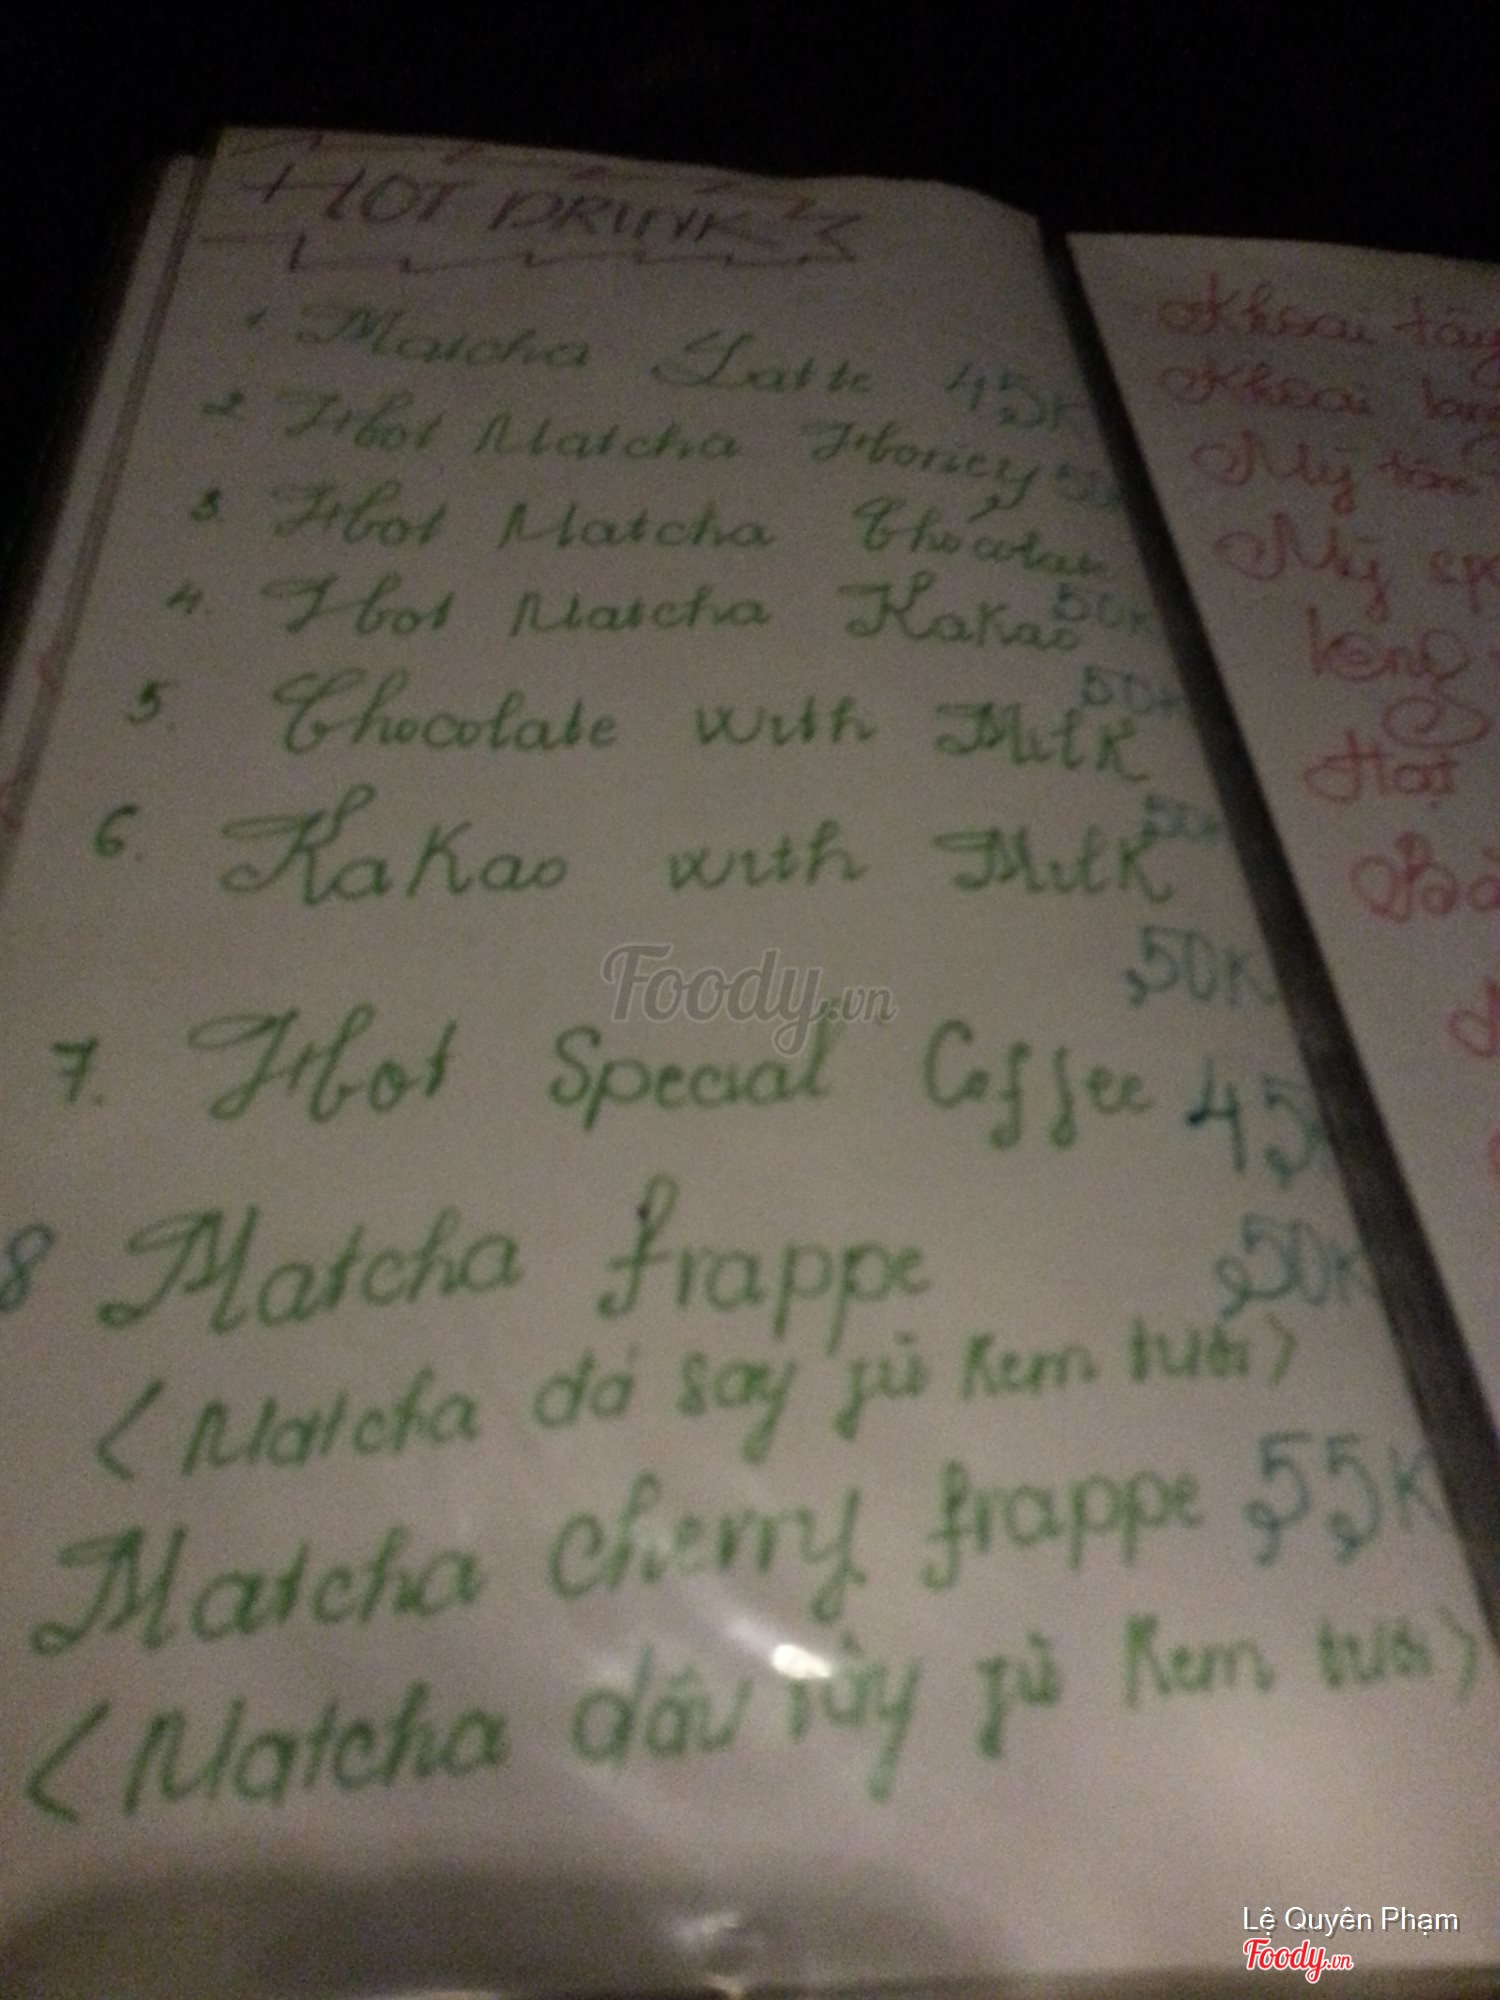 HOT DRINK
1. Matcha Latte 45K
2. Hot Matcha Honey 50K
3. Hot Matcha Chocolate
50K
4. Hot Matcha Kakao
50K
5. Chocolate with Milk
50K
6. Kakao with Milk
50K
7. Hot Special Coffee 45K
8 Matcha frappe 50K
<Matcha đá say fủ Kem tươi>
Matcha cherry frappe 55K
<Matcha dâu tây fủ Kem tươi>
Khoai tây
Khoai
Mỳ tôm
Mỳ
Hạt
Foody.vn
Lệ Quyên Phạm
Foody.vn